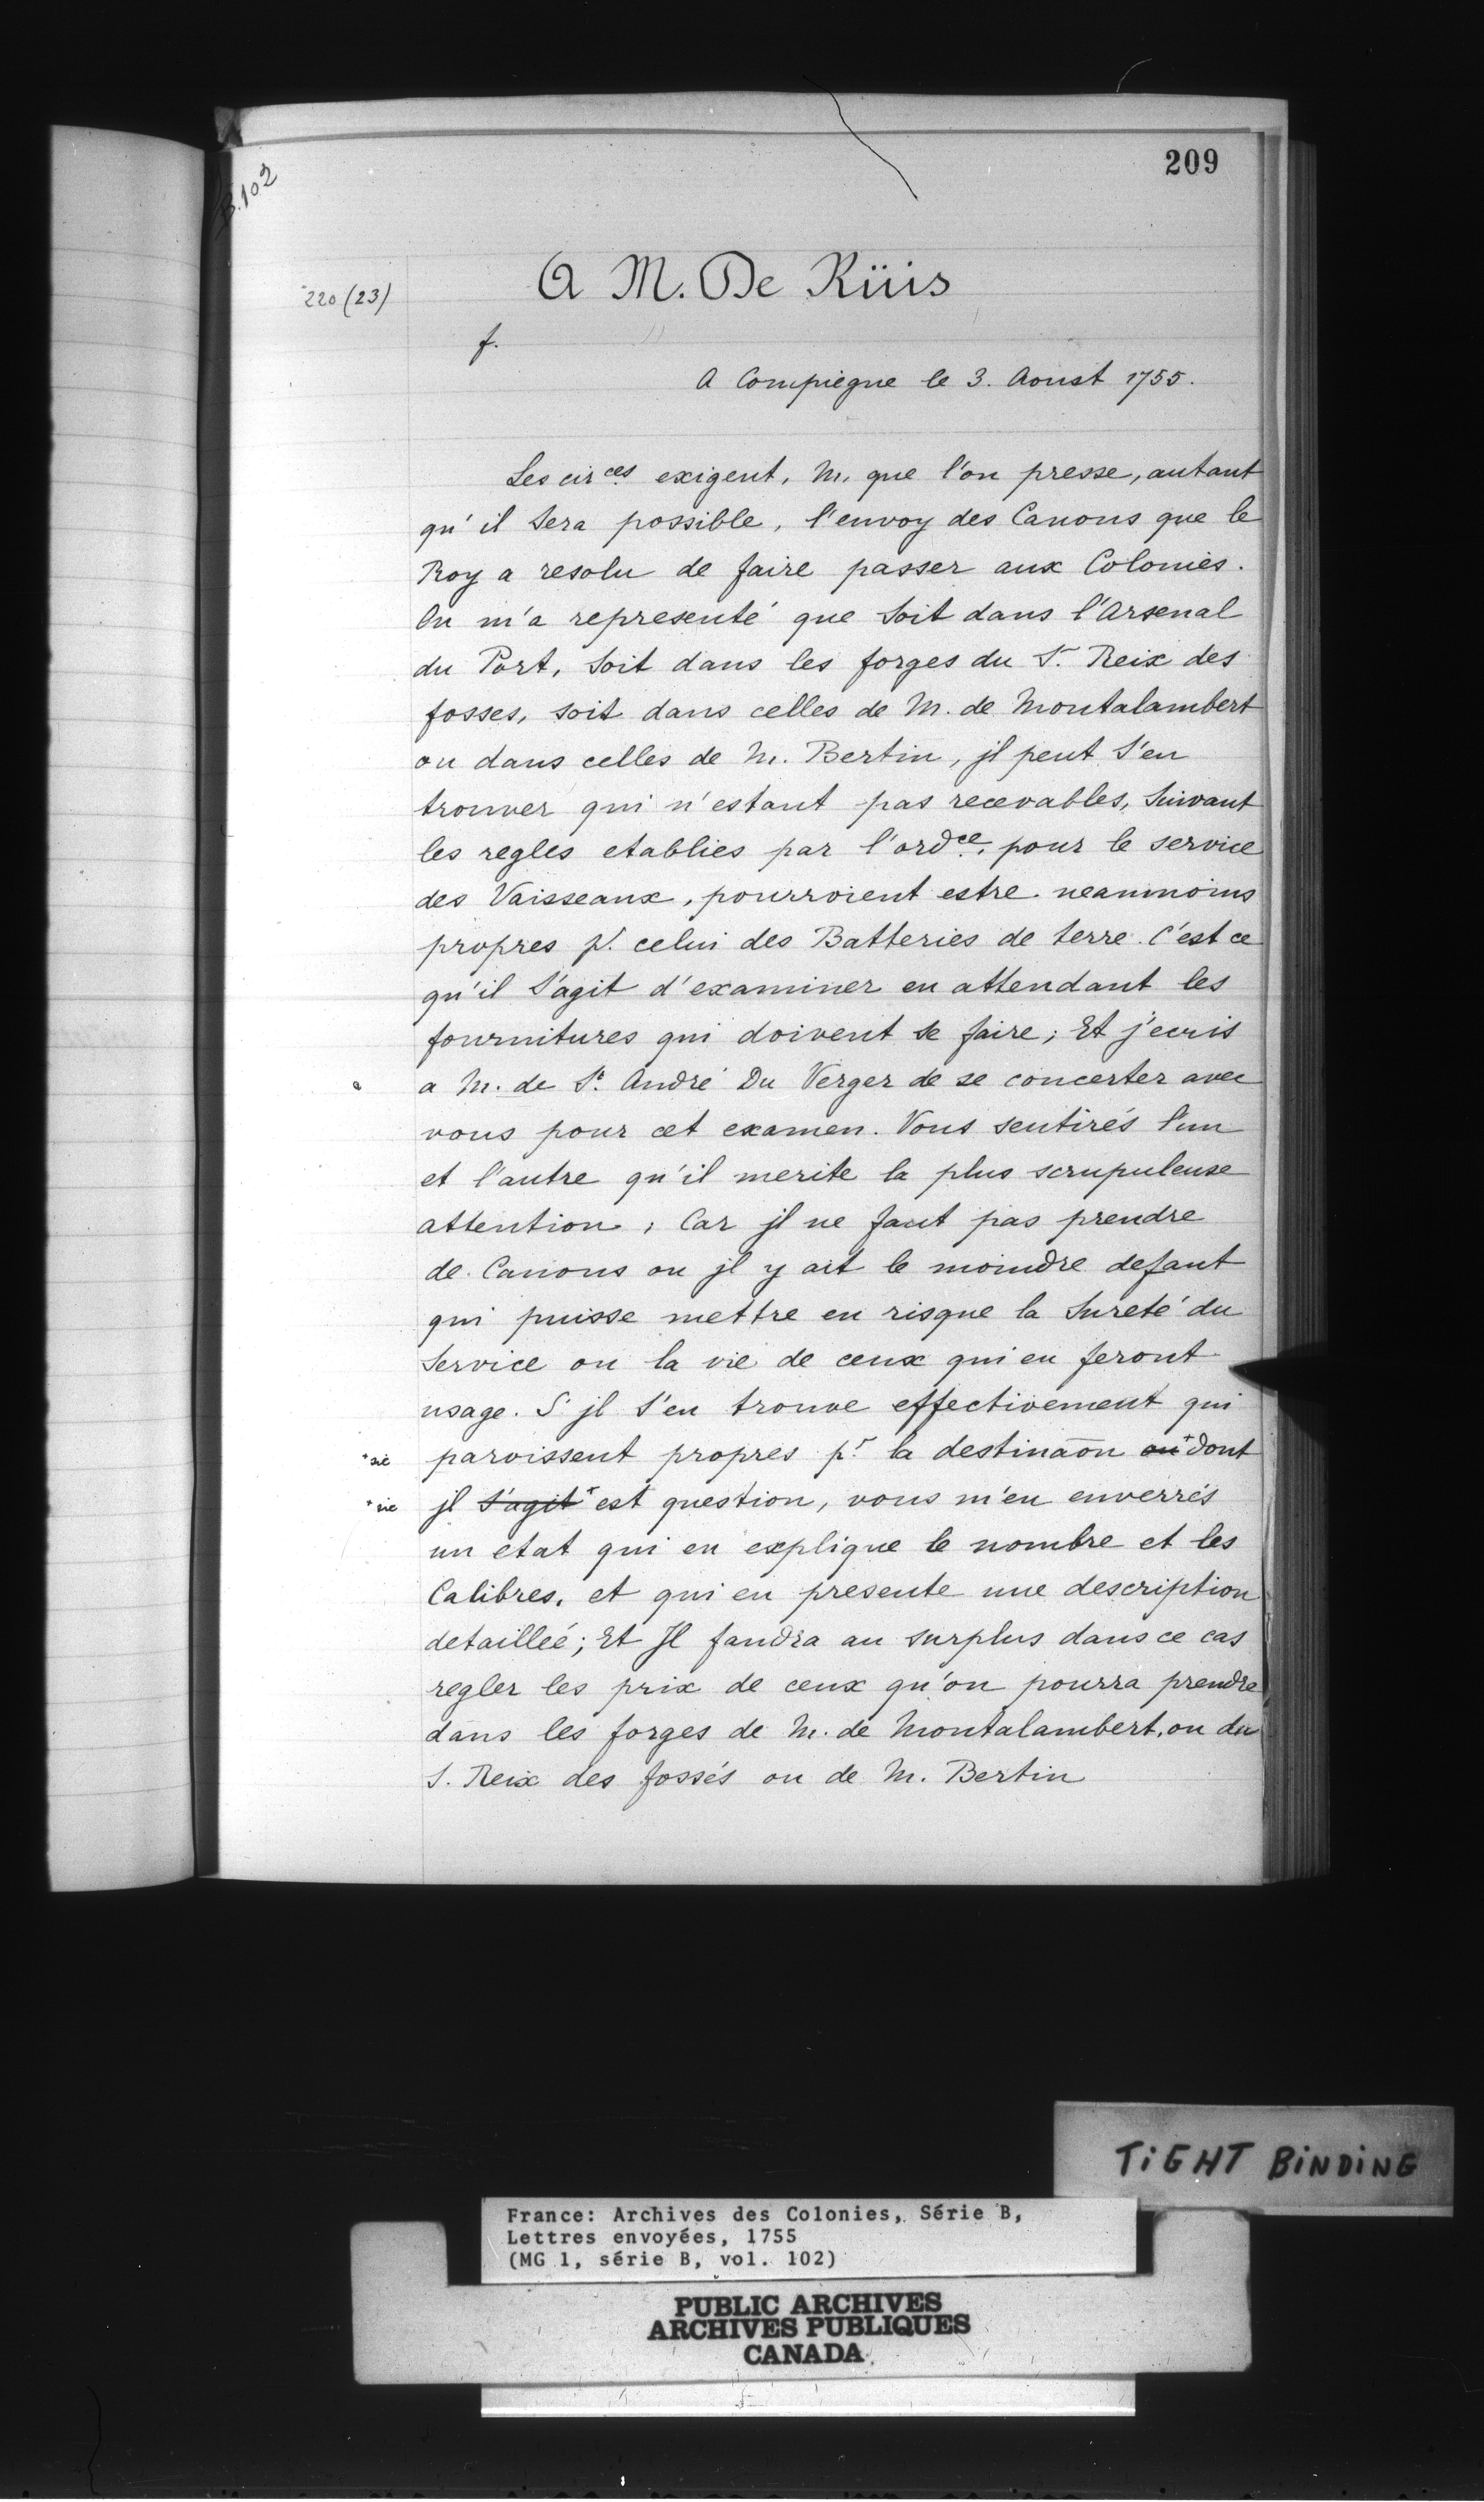 209
B.102
A M. De Rüis
220 (23)
f.
A Compiegne le 3. Aoust 1755.
Les cir.ces exigent, M. que l'on presse, autant
qu'il sera possible, l'envoy des Canons que le
Roy a resolu de faire passer aux Colonies.
On m'a representé que soit dans l'Arsenal
du Port, soit dans les forges du S.r Reix des
fosses, soit dans celles de M. de Montalambert
ou dans celles de M. Bertin, jl peut s'en
trouver qui n'estant pas recevables, suivant
les regles etablies par l'ord.ce, pour le service
des Vaisseaux, pourroient estre neanmoins
propres p.r celui des Batteries de terre. C'est ce
qu'il s'agit d'examiner en attendant les
fournitures qui doivent se faire; Et j'ecris
a M. de S.t André Du Verger de se concerter avec
vous pour cet examen. Vous sentirés l'un
et l'autre qu'il merite la plus scrupuleuse
attention; Car jl ne faut pas prendre
de Canons ou jl y ait le moindre defaut
qui puisse mettre en risque la sureté du
service ou la vie de ceux qui en feront
usage. S'jl s'en trouve effectivement qui
+sic paroissent propres p.r la destinaōn ou+ dont
+sic jl s'agit+ est question, vous m'en enverrés
un etat qui en explique le nombre et les
Calibres, et qui en presente une description
detailleé; Et Jl faudra au surplus dans ce cas
regler les prix de ceux qu'on pourra prendre
dans les forges de M. de Montalambert, ou du
S. Reix des fossés ou de M. Bertin
TIGHT BINDING
France: Archives des Colonies, Série B,
Lettres envoyées, 1755
(MG 1, série B, vol. 102)
PUBLIC ARCHIVES
ARCHIVES PUBLIQUES
CANADA